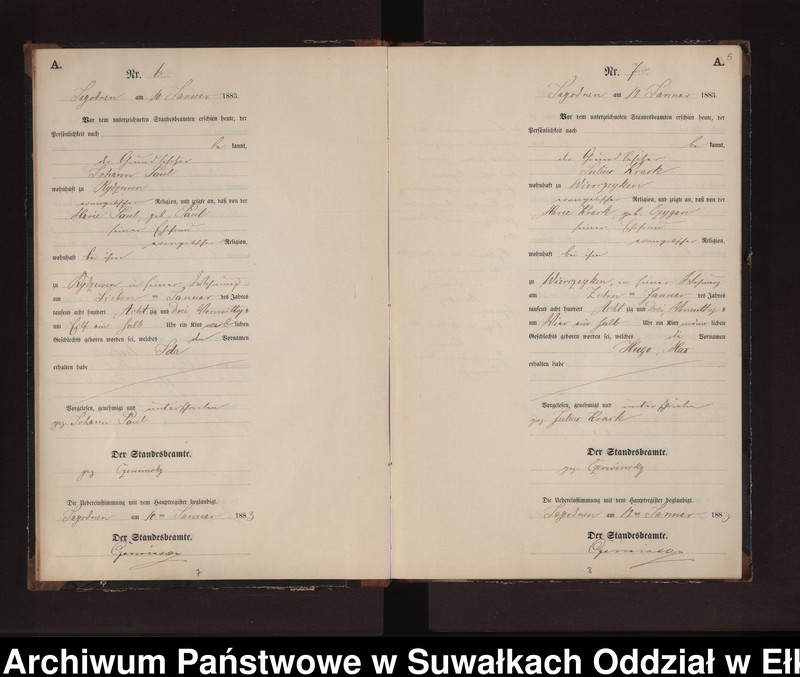 A.
Nr. 6
Sagodnen am 10 Januar 1883.
Vor dem unterzeichneten Standesbeamten erschien heute, der
Persönlichkeit nach
be kannt,
der Grundbesitzer
Johann Paul
wohnhaft zu Rydzewen
evangelischer Religion, und zeigte an, daß von der
Marie Paul, geb. Paul
seiner Ehefrau
evangelischer Religion,
wohnhaft bei ihm
zu Rydzewen in seiner Wohnung
am Sieben ten Januar des Jahres
tausend acht hundert Acht zig und drei Vormittags
um Elf ein halb Uhr ein Kind weib lichen
Geschlechts geboren worden sei, welches den Vornamen
Ida
erhalten habe
Vorgelesen, genehmigt und unterschrieben
gez. Johann Paul
Der Standesbeamte.
gez. Czerwinsky
Die Uebereinstimmung mit dem Hauptregister beglaubigt.
Sagodnen am 10ten Januar 1883
Der Standesbeamte.
Czerwinsky
7
A.
Nr. 7
Sagodnen am 12 Januar 1883.
Vor dem unterzeichneten Standesbeamten erschien heute, der
Persönlichkeit nach
be kannt,
der Grundbesitzer
Julius Krark
wohnhaft zu Wierczeyken
evangelischer Religion, und zeigte an, daß von der
Marie Krark geb. Czygan
seiner Ehefrau
evangelischer Religion,
wohnhaft bei ihm
zu Wierczeyken, in seiner Wohnung
am Zehn ten Januar des Jahres
tausend acht hundert Acht zig und drei Vormittags
um Vier ein halb Uhr ein Kind männ lichen
Geschlechts geboren worden sei, welches die Vornamen
Hugo, Max
erhalten habe
Vorgelesen, genehmigt und unterschrieben
gez. Julius Krark
Der Standesbeamte.
gez. Czerwinsky
Die Uebereinstimmung mit dem Hauptregister beglaubigt.
Sagodnen am 12ten Januar 1883
Der Standesbeamte.
Czerwinsky
8
Archiwum Państwowe w Suwałkach Oddział w Ełk